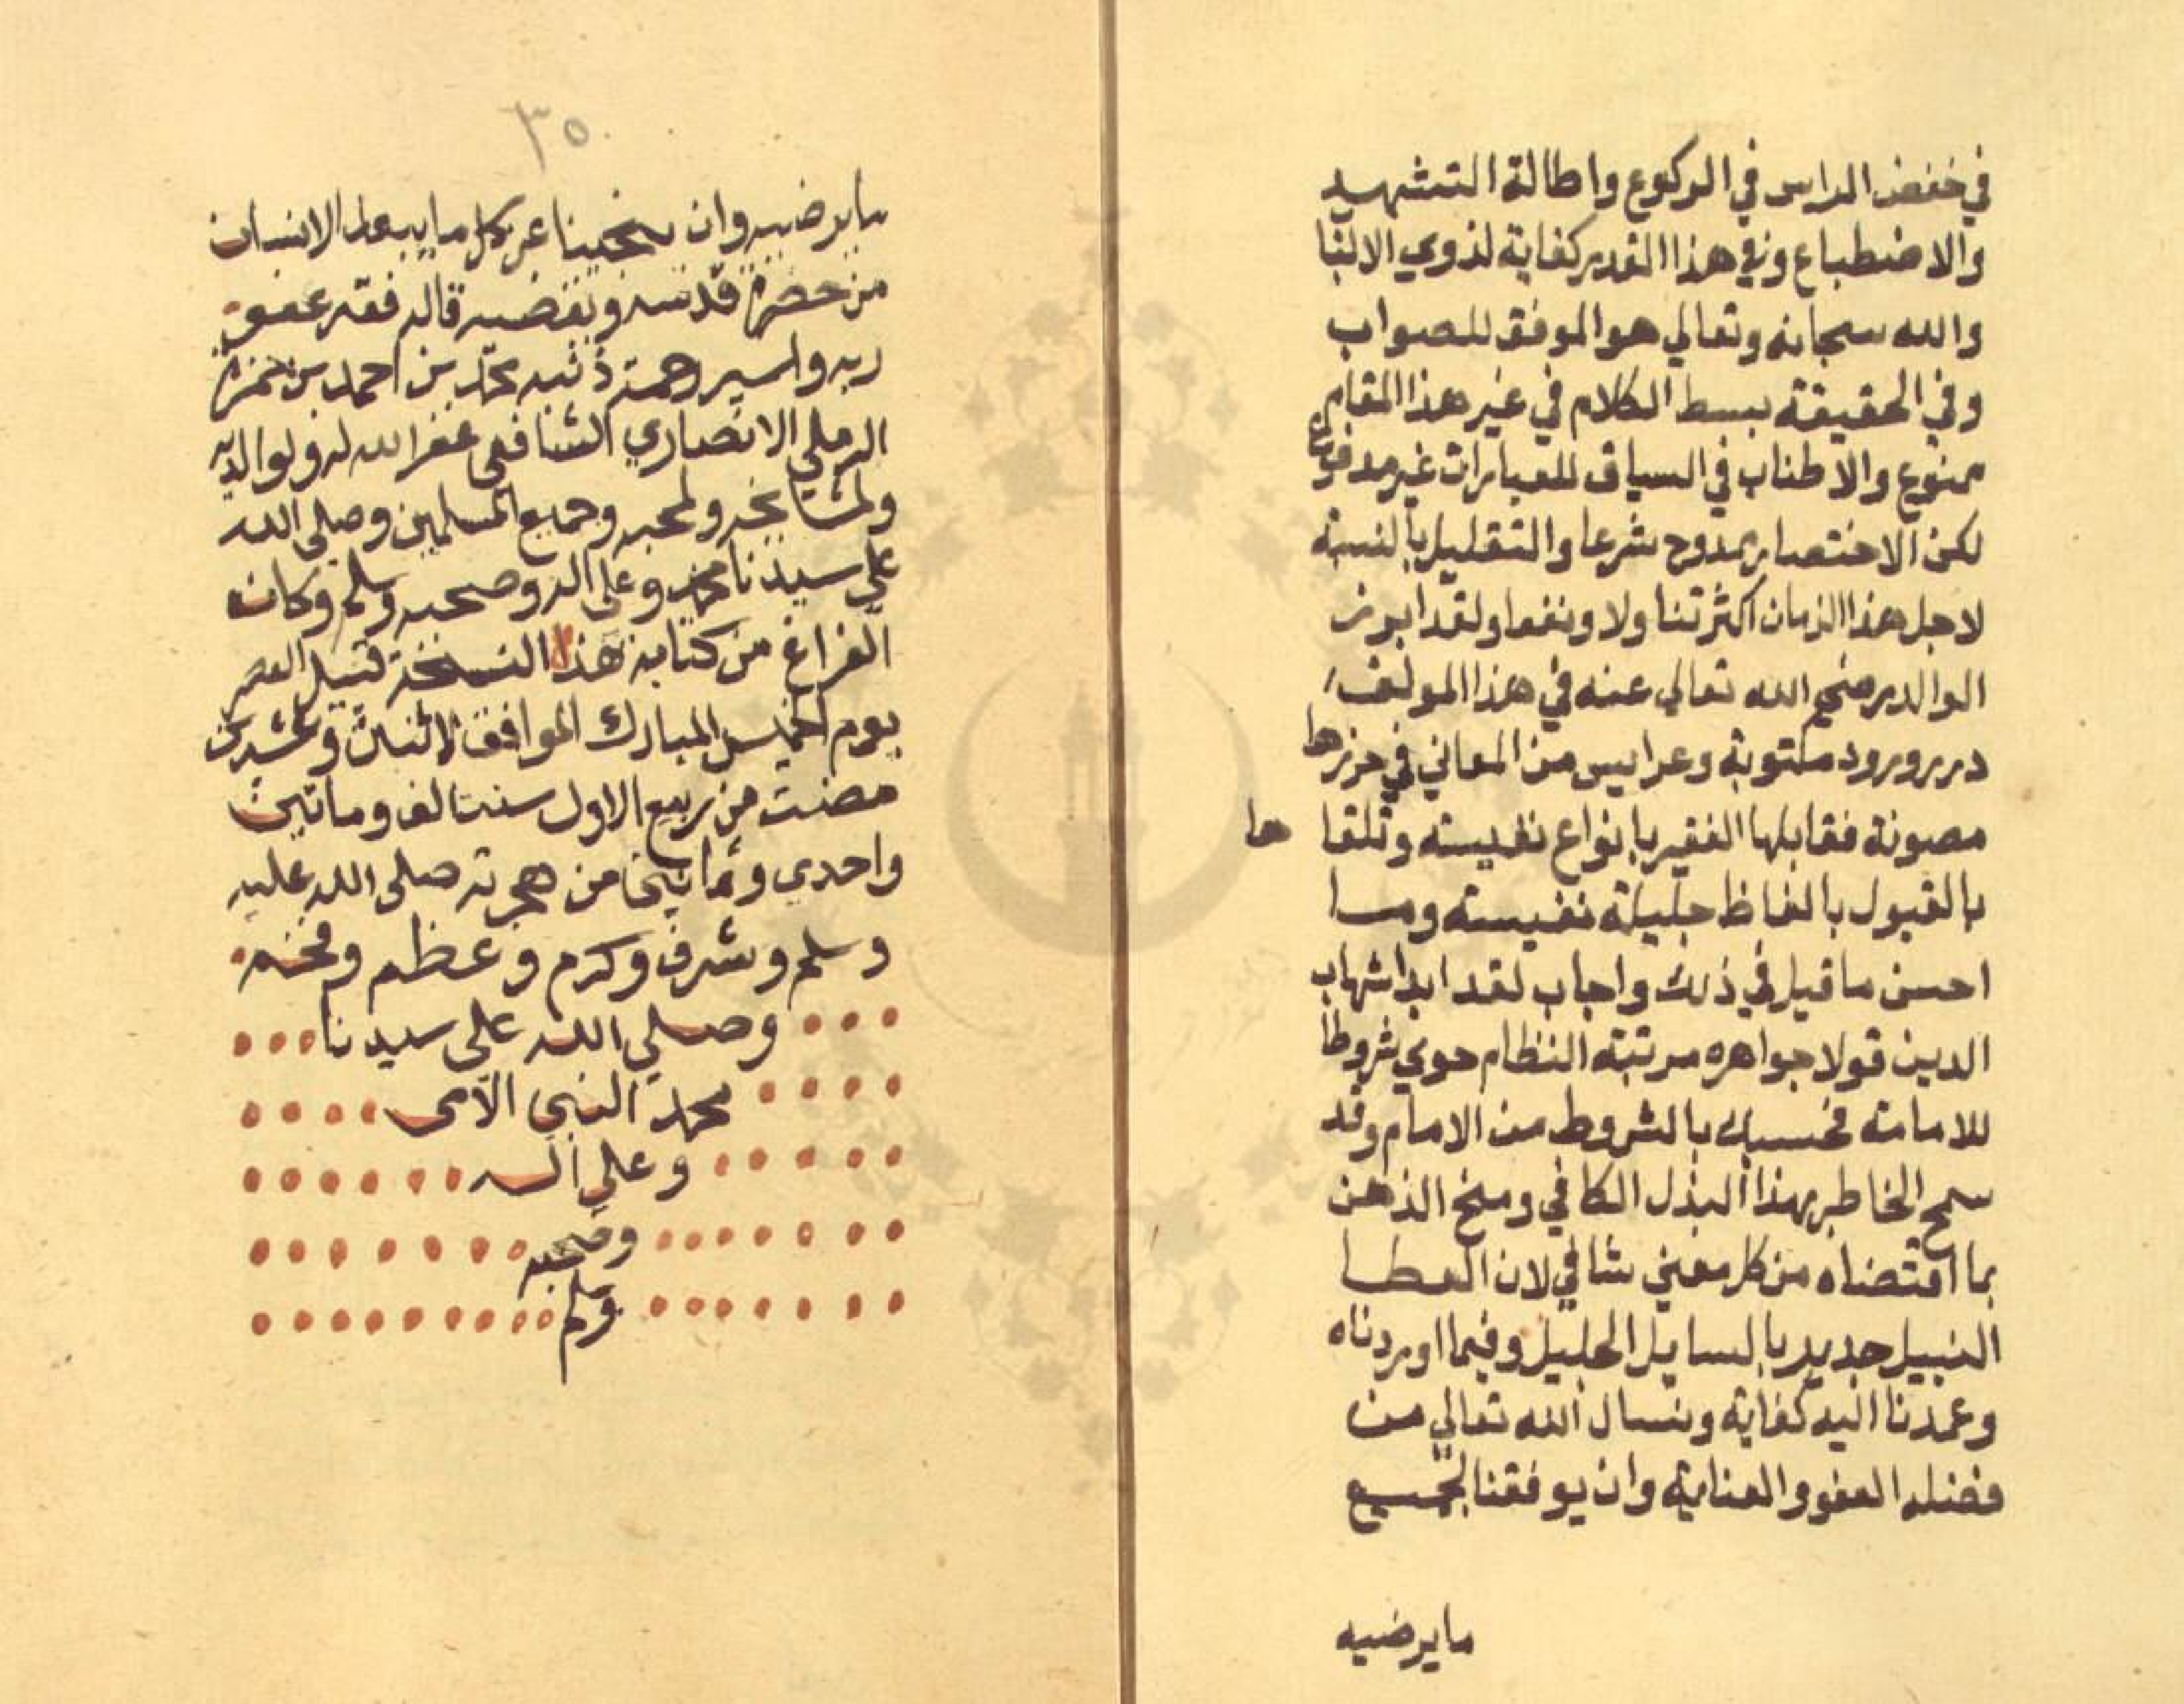 في خفض الراس في الركوع واطالة التشهد
والاضطباع وفي هذا القدر كفاية لذوي الالبا
والله سبحانه وتعالي هو الموفق للصواب
وفي الحقيقة بسط الكلام في غير هذا المقام
ممنوع والاطناب في السياق للعبارات غير مدفوع
لكن الاختصار ممدوح شرعا والتقليل بالنسبة
لاجل هذا الزمان اكثر تنا ولا ونفعا ولقد ابرز
الوالد رضي الله تعالي عنه في هذا المولف
درر ورود مكتوبة وعرايس من المعاني في حرزها
مصونة فقابلها الفقير بانواع نفيسته وتلقا ها
بالقبول بالفاظ جليلة نفيسته وما
احسن ما قيل في ذلك واجاب لقد ابدا شهاب
الدين قولا جواهره مرتبة النظام حوي شروطا
للامامة فحسبك بالشروط من الامام وقد
سمح الخاطر بهذا البذل الكافي ومنح الذهن
بما اقتضاه من كل معني شافي لان العطا
النبيل جدير بالسايل الجليل وفيما اوردناه
وعمدنا اليه كفاية ونسال الله تعالي من
فضله العفو والعناية وان يوفقنا لجميع
ما يرضيه
٣٥
ما يرضيه وان ينجينا عن كل ما يبعد الانسان
من حضرة قدسه ويغضبه قاله فقير عفو
ربه واسير وصمة ذنبه محمد بن احمد بن حمزة
الرملي الانصاري الشافعي غفر الله له ولوالديه
ولمشايخه ولمحبه وجميع المسلمين وصلي الله
علي سيدنا محمد وعلي اله وصحبه وسلم وكان
الفراغ من كتابة هذه النسخة قبيل العصر
يوم الخميس المبارك الموافق لاثنين وعشرين
مضت من ربيع الاول سنت الف وماتين
واحدي وثمانين من هجرته صلى الله عليه
وسلم وشرف وكرم وعظم وفخم
وصلي الله على سيدنا
محمد النبي الامي
وعلي اله
وصحبه
وسلم